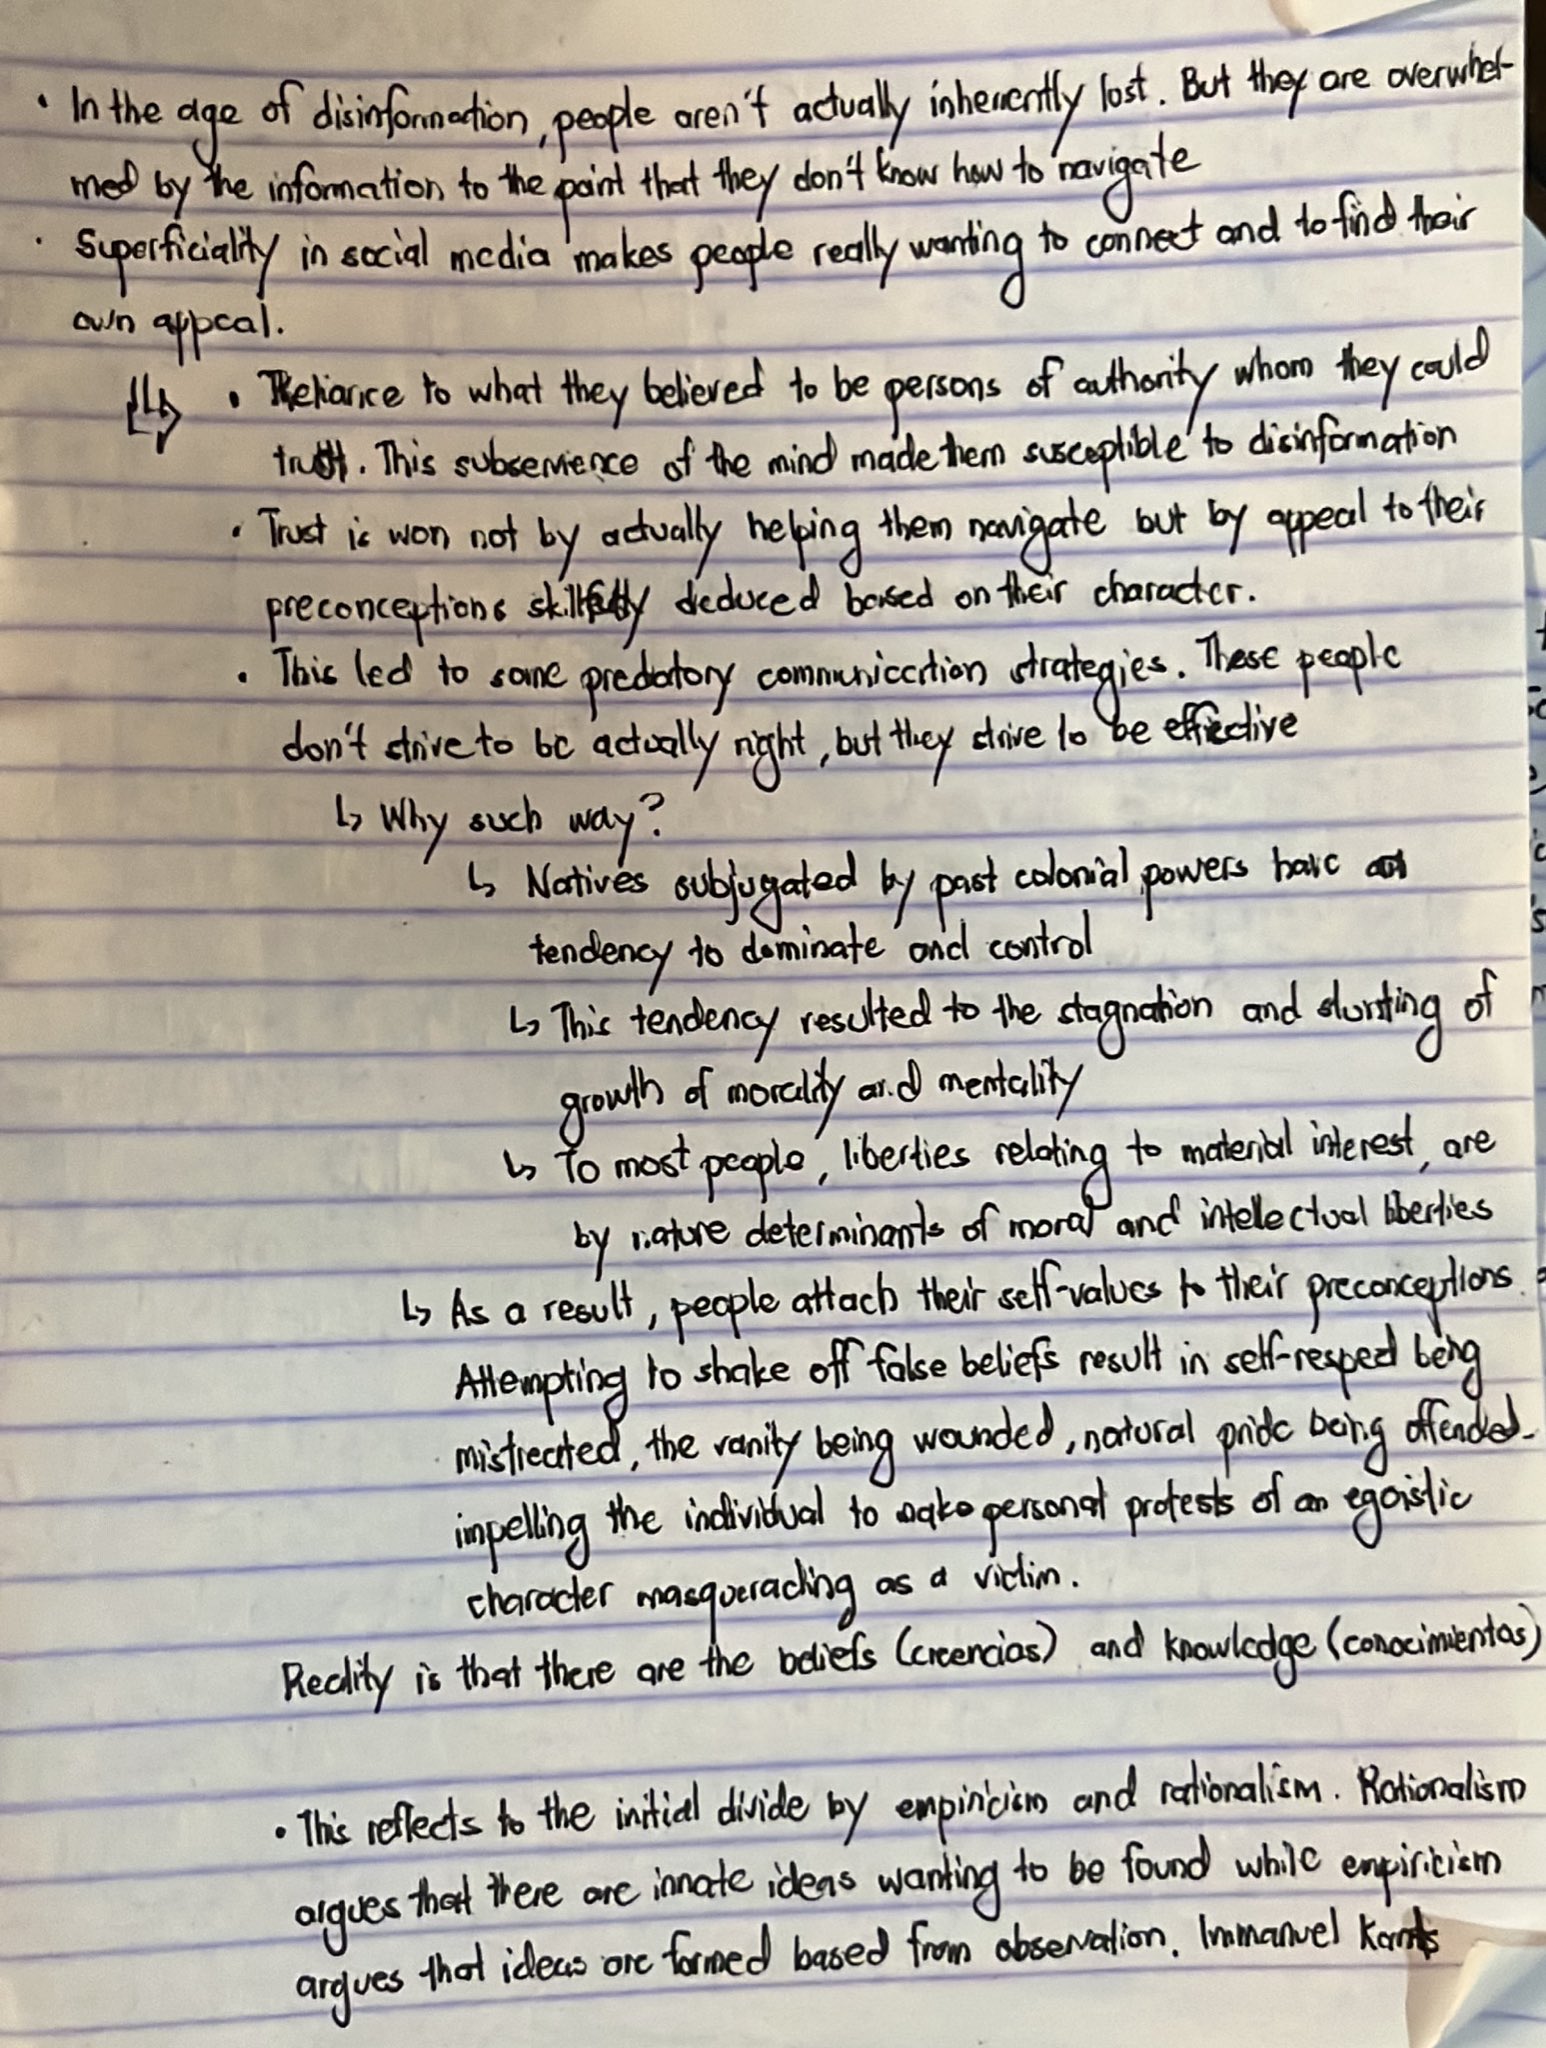 • In the age of disinformation, people aren't actually inherently lost. But they are overwhel-
med by the information to the point that they don't know how to navigate
• Superficiality in social media makes people really wanting to connect and to find their
own appeal.
• Reliance to what they believed to be persons of authority whom they could
trust. This subservience of the mind made them susceptible to disinformation
• Trust is won not by actually helping them navigate but by appeal to their
preconceptions skillfully deduced based on their character.
• This led to some predatory communication strategies. These people
don't strive to be actually right, but they strive to be effective
↳ Why such way?
↳ Natives subjugated by past colonial powers have
tendency to dominate and control
↳ This tendency resulted to the stagnation and stunting of
growth of morality and mentality
↳ To most people, liberties relating to material interest, are
by nature determinants of moral and intellectual liberties
↳ As a result, people attach their self-values to their preconceptions.
Attempting to shake off false beliefs result in self-respect being
mistreated, the vanity being wounded, natural pride being offended-
impelling the individual to make personal protests of an egoistic
character masquerading as a victim.
Reality is that there are the beliefs (creencias) and knowledge (conocimientos)
• This reflects to the initial divide by empiricism and rationalism. Rationalism
argues that there are innate ideas wanting to be found while empiricism
argues that ideas are formed based from observation. Immanuel Kants